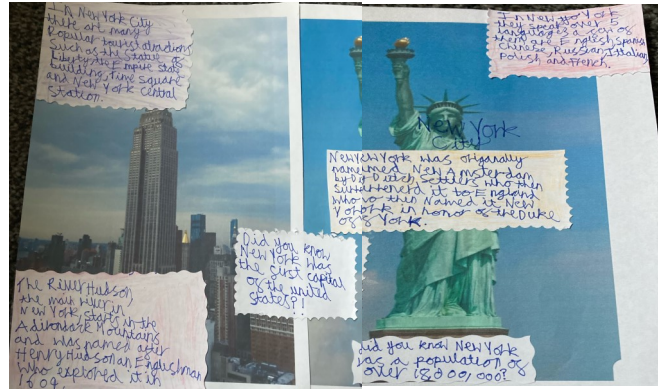 In New York City
there are many
Popular tourist atractions
Such as the Statue of
Liberty, the Empire state
building, Time Square
and New York Central
Station.
In New York
they speak over 5
languages
them are English, Spanish
Chinese, Russian, Italian,
Polish and French.
New York
City
New York was origanally
named New Amsterdam
by Dutch Settlers who then
surrenered it to England
who then Named it New
York in honor of the Duke
of York.
Did you know
New York was
the first capital
of the united
states?!
The River Hudson
the main river in
New York starts in the
Adironack Mountains
and was named after
Henry Hudson an Englishman
who explored it in
1609.
Did you know New York
has a population of
over 18,000,000?